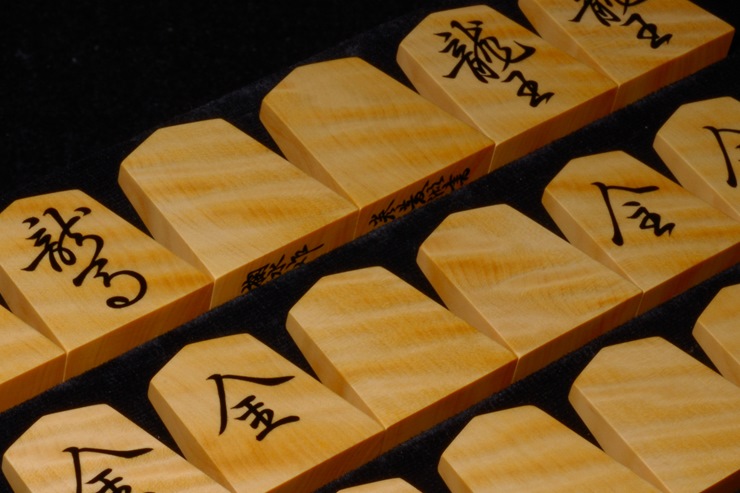 龍王
龍王
龍馬
金
金
金
金